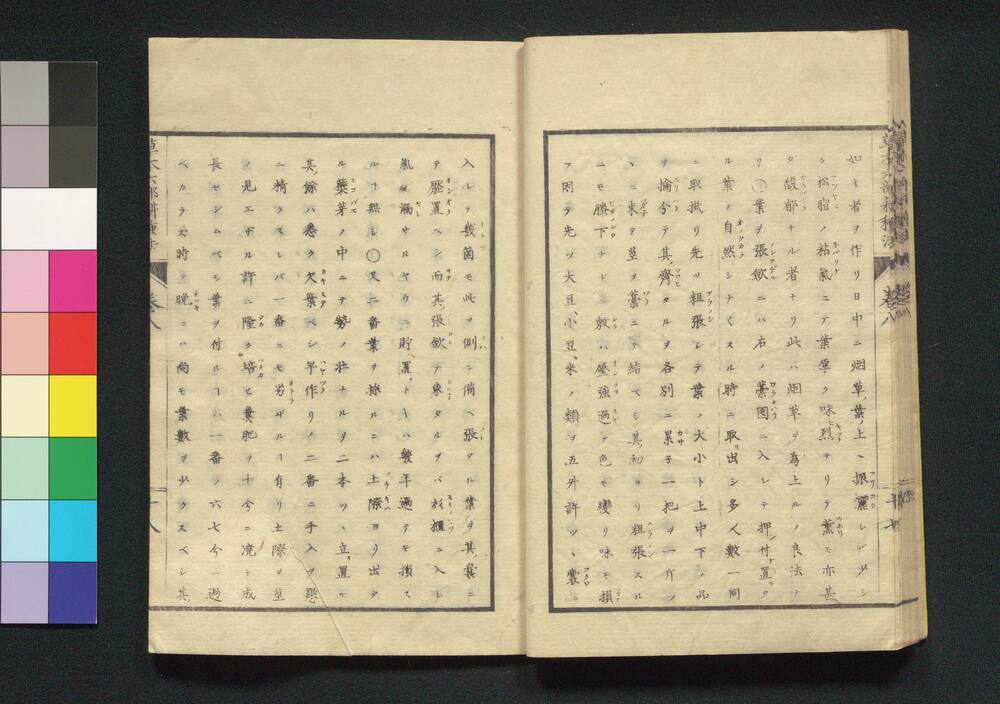 如キ者ヲ作リ日中ニ烟草葉ノ上ヘ振灑レバ少シ
ク松脂ノ粘氣ニテ葉厚ク味烈ナリテ薫モ亦甚
タ馥郁ナル者ナリ此ハ烟草ヲ為上ルノ良法ナ
リ〇葉ヲ張歛ニハ右ノ藁囤ニ入レテ押付置キ
ル葉ノ自然シナくスル時ニ取出シ多人數一同
ニ取掛リ先ツ粗張シテ葉ノ大小ト上中下ノ品
ヲ掄分テ其齊タルヲ各別ニ累子一把ヲ一斤ツ
ニ束テ草ヲ藁ニテ結ベシ其初ヨリ粗張スル
ニモ膝下ナドニ敷ハ壓強過テ色モ變リ味モ損
フ因テ先ツ大豆、小豆、米ノ類ヲ五升許ツ、囊ニ
入レテ幾箇モ此ヲ側ニ備ヘ張タル葉ヲ其囊ニ
テ壓置ベシ而其張歛テ束タルヲバ杉櫃ニ入レ
氣ノ漏サルヤウニ貯置トキハ幾年過テモ損ス
ルヿ無シ〇又二番葉ヲ採ルニハ土際ヨリ出タ
ル蘖芽ノ中ニテ勢ノ壯ナルヲ二本ツ、立置テ
其餘ハ悉ク欠棄ベシ早作リノ二番ニ手入ヲ懇
ニ精クスレバ一番ニモ劣ザルヿ有リ土際ヲ莖
ノ見エザル許ニ隆ク培ヒ糞肥ヲ十分ニ澆テ成
長セシムベシ葉ヲ付ルヿハ一番ノ六七分ニ過
ベカラズ時ノ晩ニハ尚モ葉數ヲ少クスベシ其
草木六部耕種法
卷八
十八